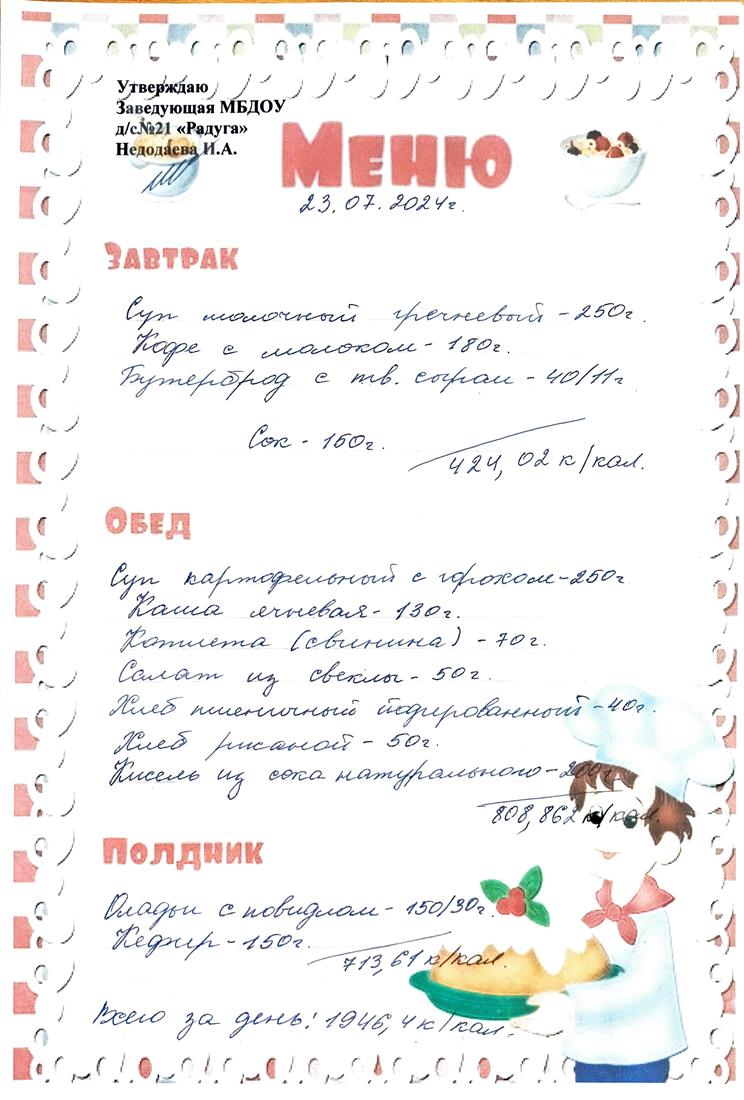 Утверждаю
Заведующая МБДОУ
д/с№21 «Радуга»
Недодаева И.А.
Меню
23.07.2024г.
Завтрак
Суп молочный гречневый - 250г.
Кофе с молоком - 180г.
Бутерброд с тв. сыром - 40/11г
Сок - 150г.
424,02 к/кал.
Обед
Суп картофельный с горохом - 250г
Каша ячневая - 130г.
Котлета (свинина) - 70г.
Салат из свеклы - 50г.
Хлеб пшеничный йодированный - 40г.
Хлеб ржаной - 50г.
Кисель из сока натурального - 200г.
808,862 к/кал.
Полдник
Оладьи с повидлом - 150/30г.
Кефир - 150г.
713,61 к/кал.
Всего за день: 1946,4 к/кал.